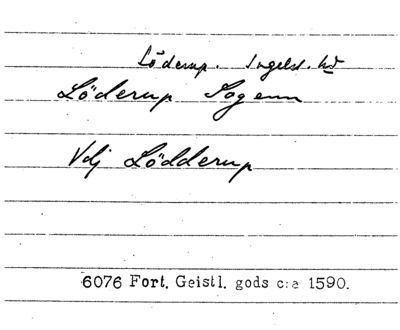 Löderup. Ingelst. hd
Löderup Sogenn
Vdj Lödderup
6076 Fort. Geistl. gods c:a 1590.